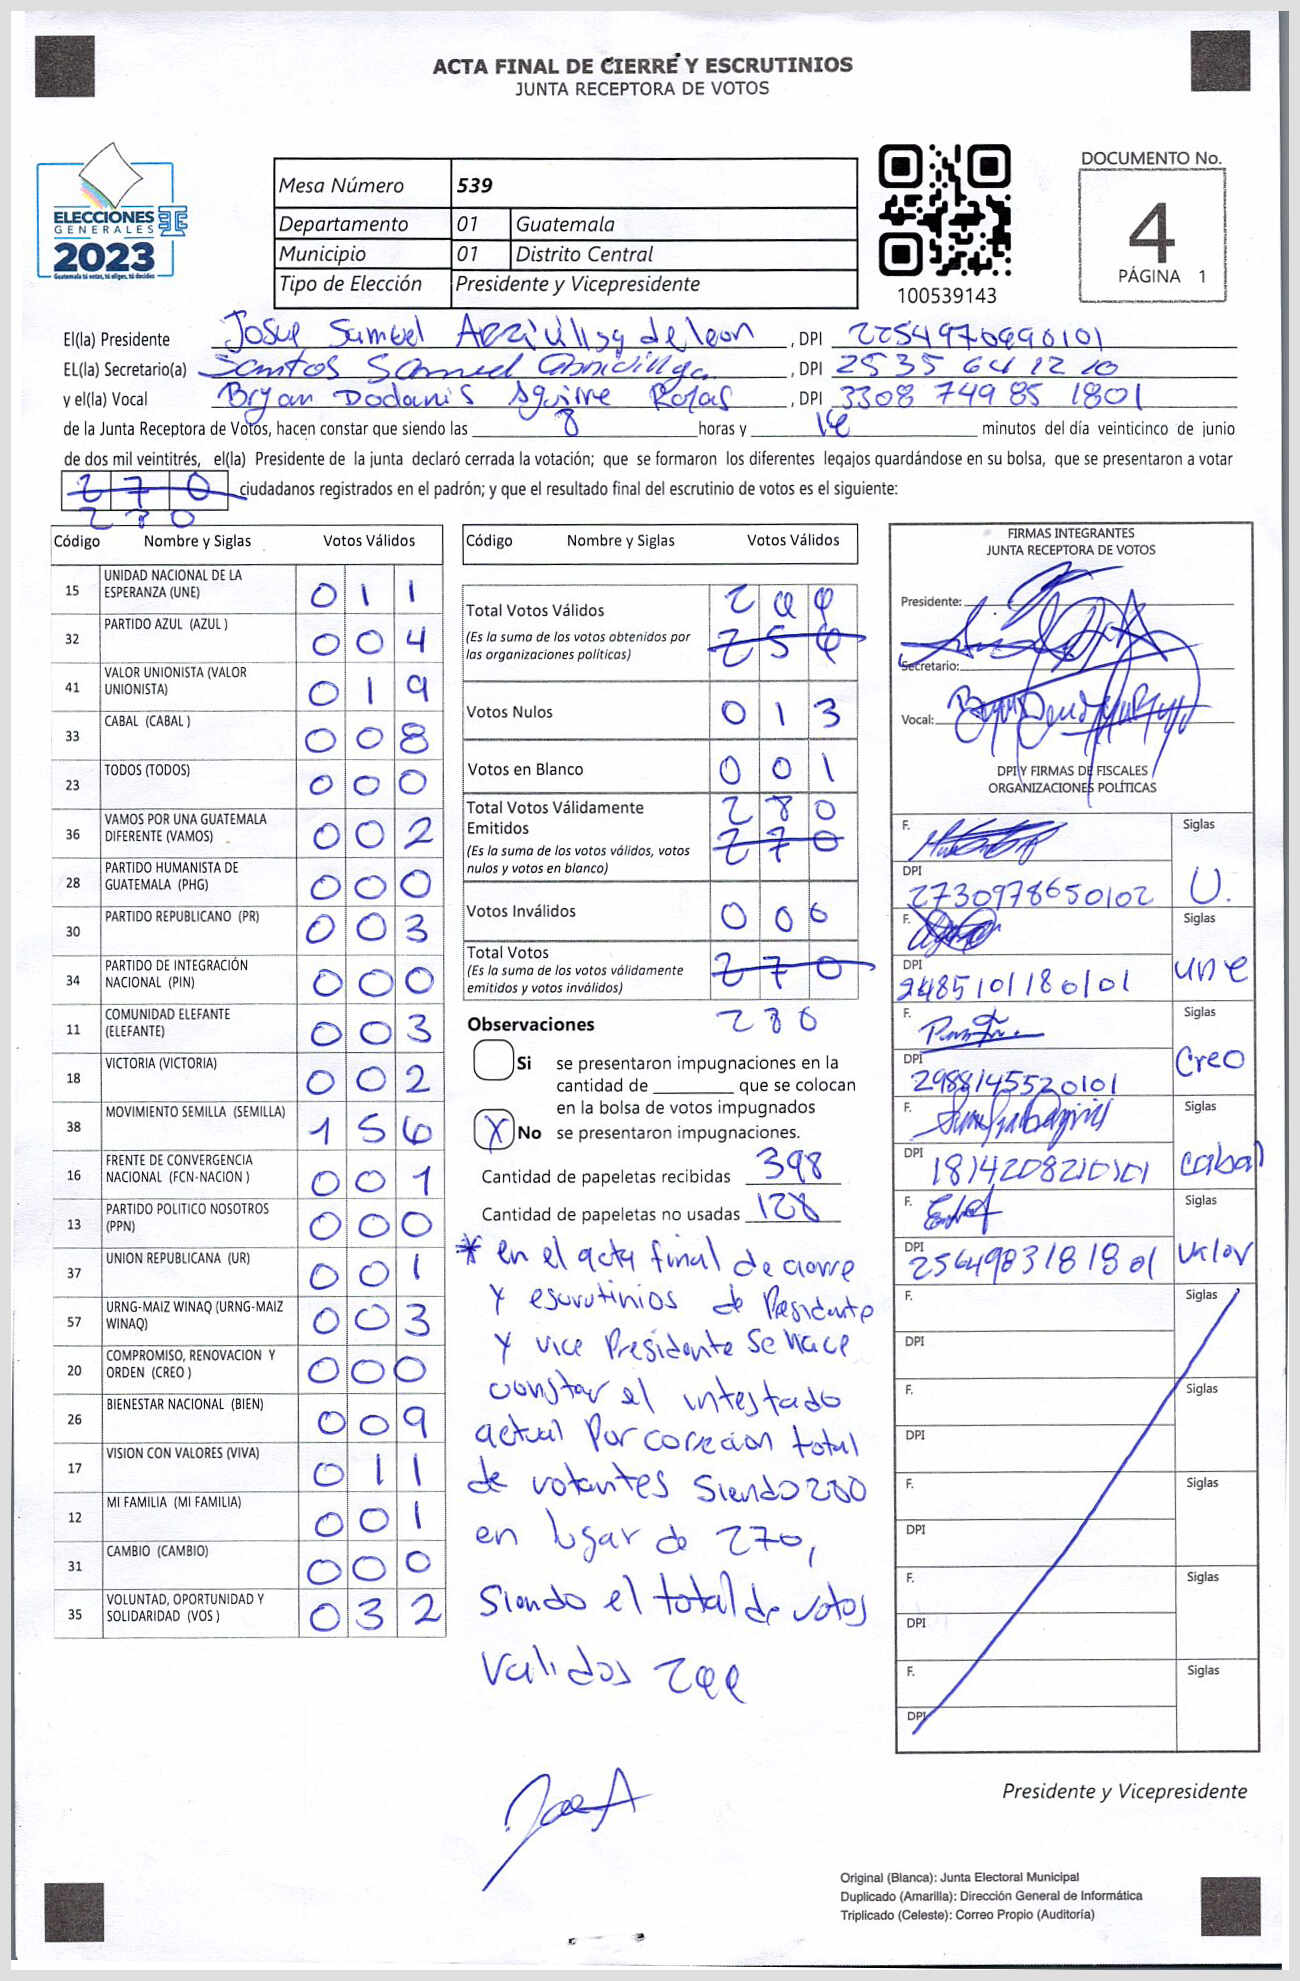 ACTA FINAL DE CIERRE Y ESCRUTINIOS
JUNTA RECEPTORA DE VOTOS
ELECCIONES
GENERALES
2023
Guatemala tú votas, tú eliges, tú decides
Mesa Número 539
Departamento 01 Guatemala
Municipio 01 Distrito Central
Tipo de Elección Presidente y Vicepresidente
100539143
DOCUMENTO No.
4
PÁGINA 1
El(la) Presidente Josue Samuel de leon, DPI
EL(la) Secretario(a) Santos Samuel, DPI 2535 64 12 10
y el(la) Vocal Bryan Dodanis Aguirre Rojas, DPI 3308 749 85 1801
de la Junta Receptora de Votos, hacen constar que siendo las 8 horas y minutos del día veinticinco de junio
de dos mil veintitrés, el(la) Presidente de la junta declaró cerrada la votación; que se formaron los diferentes legajos guardándose en su bolsa, que se presentaron a votar
270 ciudadanos registrados en el padrón; y que el resultado final del escrutinio de votos es el siguiente:
280
Código Nombre y Siglas Votos Válidos
15 UNIDAD NACIONAL DE LA ESPERANZA (UNE) 011
32 PARTIDO AZUL (AZUL ) 004
41 VALOR UNIONISTA (VALOR UNIONISTA) 019
33 CABAL (CABAL ) 008
23 TODOS (TODOS) 000
36 VAMOS POR UNA GUATEMALA DIFERENTE (VAMOS) 002
28 PARTIDO HUMANISTA DE GUATEMALA (PHG) 000
30 PARTIDO REPUBLICANO (PR) 003
34 PARTIDO DE INTEGRACIÓN NACIONAL (PIN) 000
11 COMUNIDAD ELEFANTE (ELEFANTE) 003
18 VICTORIA (VICTORIA) 002
38 MOVIMIENTO SEMILLA (SEMILLA) 156
16 FRENTE DE CONVERGENCIA NACIONAL (FCN-NACION ) 001
13 PARTIDO POLITICO NOSOTROS (PPN) 000
37 UNION REPUBLICANA (UR) 001
57 URNG-MAIZ WINAQ (URNG-MAIZ WINAQ) 003
20 COMPROMISO, RENOVACION Y ORDEN (CREO ) 000
26 BIENESTAR NACIONAL (BIEN) 009
17 VISION CON VALORES (VIVA) 011
12 MI FAMILIA (MI FAMILIA) 001
31 CAMBIO (CAMBIO) 000
35 VOLUNTAD, OPORTUNIDAD Y SOLIDARIDAD (VOS ) 032
Código Nombre y Siglas Votos Válidos
Total Votos Válidos
(Es la suma de los votos obtenidos por
las organizaciones políticas)
Votos Nulos 013
Votos en Blanco 001
Total Votos Válidamente 280
Emitidos 270
(Es la suma de los votos válidos, votos
nulos y votos en blanco)
Votos Inválidos 000
Total Votos 270
(Es la suma de los votos válidamente
emitidos y votos inválidos)
Observaciones 280
Si se presentaron impugnaciones en la
cantidad de ________ que se colocan
en la bolsa de votos impugnados
X No se presentaron impugnaciones.
Cantidad de papeletas recibidas 398
Cantidad de papeletas no usadas 128
* en el acta final de cierre
y escrutinios de Presidente
y vice Presidente se hace
constar el intestado
actual Por coreccion total
de votantes siendo 280
en lugar de 270,
siendo el total de votos
validos
FIRMAS INTEGRANTES
JUNTA RECEPTORA DE VOTOS
Presidente:
Secretario:
Vocal:
DPI Y FIRMAS DE FISCALES
ORGANIZACIONES POLÍTICAS
F. Siglas
DPI 2730978650102 U.
F. Siglas
DPI une
F. Siglas
DPI 2988145520101 Creo
F. Siglas
DPI cabal
F. Siglas
DPI valor
F. Siglas
DPI
F. Siglas
DPI
F. Siglas
DPI
F. Siglas
DPI
F. Siglas
DPI
Presidente y Vicepresidente
Original (Blanca): Junta Electoral Municipal
Duplicado (Amarilla): Dirección General de Informática
Triplicado (Celeste): Correo Propio (Auditoría)